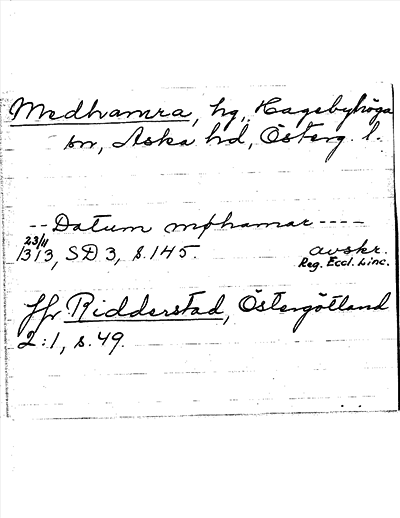 Medhamra, hg, Hagebyhöga
sn, Aska hd, Österg. l.
-- Datum mœhamar ----
23/11
1313, SD 3, s. 145. avskr.
Reg. Eccl. Linc.
Jfr Ridderstad, Östergötland
2:1, s. 49.